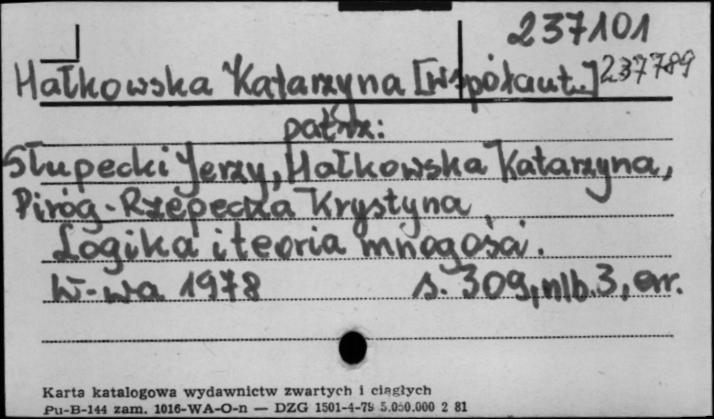 237101
Hałkowska Katarzyna [współaut.] 237789
patrz:
Słupecki Jerzy, Hałkowska Katarzyna,
Piróg-Rzepecka Krystyna
Logika i teoria mnogości.
W-wa 1978 s. 309, nlb. 3, err.
Karta katalogowa wydawnictw zwartych i ciągłych
Pu-B-144 zam. 1016-WA-O-n — DZG 1501-4-79 5.050.000 2 81